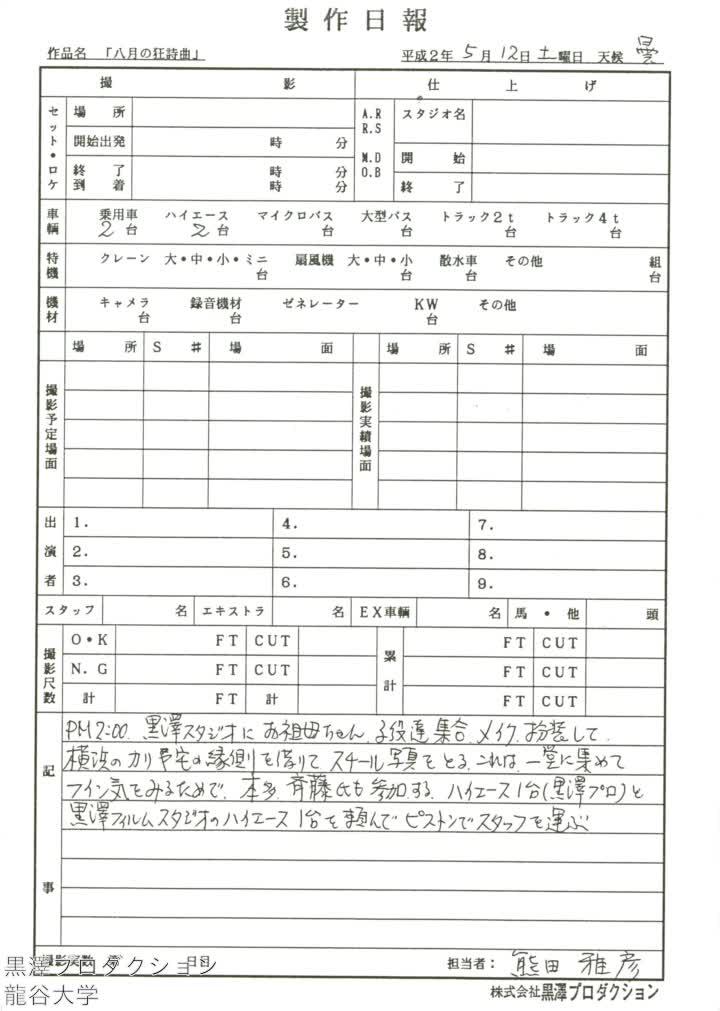 製作日報
作品名 「八月の狂詩曲」 平成2年 5月 12日 土曜日 天候 曇
撮影 仕上げ
セット・ロケ 場所 A.R R.S スタジオ名
開始出発 時 分 M.D O.B 開始
終了 時 分 終了
到着 時 分
車輌 乗用車 ハイエース マイクロバス 大型バス トラック2t トラック4t
2台 2台 台 台 台 台
特機 クレーン 大・中・小・ミニ 扇風機 大・中・小 散水車 その他 組
台 台 台 台
機材 キャメラ 録音機材 ゼネレーター KW その他
台 台 台
場所 S # 場面 場所 S # 場面
撮影予定場面 撮影実績場面
出演者 1. 4. 7.
2. 5. 8.
3. 6. 9.
スタッフ 名 エキストラ 名 EX車輌 名 馬・他 頭
撮影尺数 O・K FT CUT 累計 FT CUT
N.G FT CUT FT CUT
計 FT 計 FT CUT
記事
PM2:00. 黒澤スタジオに お祖母ちゃん、子役達集合、メイク、扮装して、
横浜の 宅の縁側を借りて スチール写真をとる、これは、一堂に集めて
フイン気をみるためで、本多、斉藤氏も参加する、ハイエース1台(黒澤プロ)と
黒澤フィルムスタジオのハイエース1台を頼んで ピストンでスタッフを運ぶ
撮影実数 第 日目 担当者: 熊田 雅彦
株式会社黒澤プロダクション
黒澤プロダクション
龍谷大学